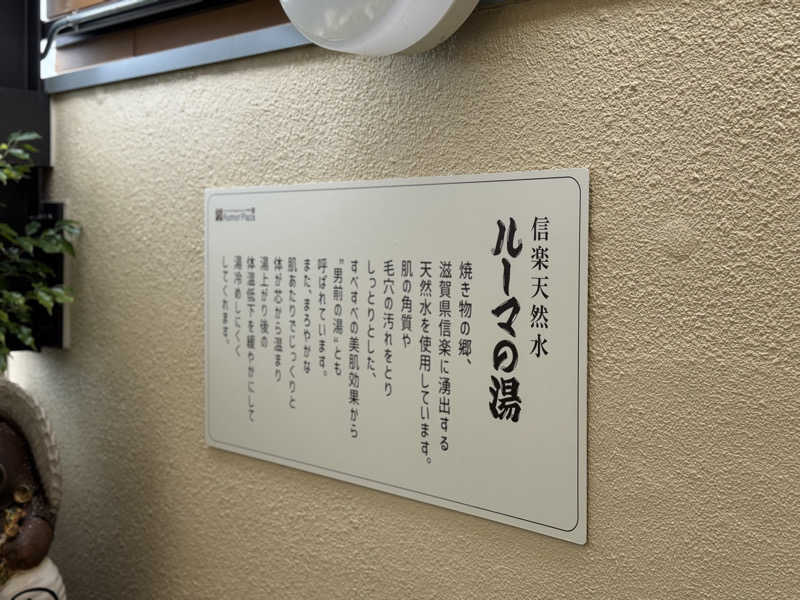 信楽天然水
ルーマの湯
焼き物の郷、
滋賀県信楽に湧出する
天然水を使用しています。
肌の角質や
毛穴の汚れをとり
しっとりとした、
すべすべの美肌効果から
"男前の湯"とも
呼ばれています。
また、まろやかな
肌あたりでじっくりと
体が芯から温まり
湯上がり後の
体温低下を緩やかにして
湯冷めしにくく
してくれます。
Roumor Plaza